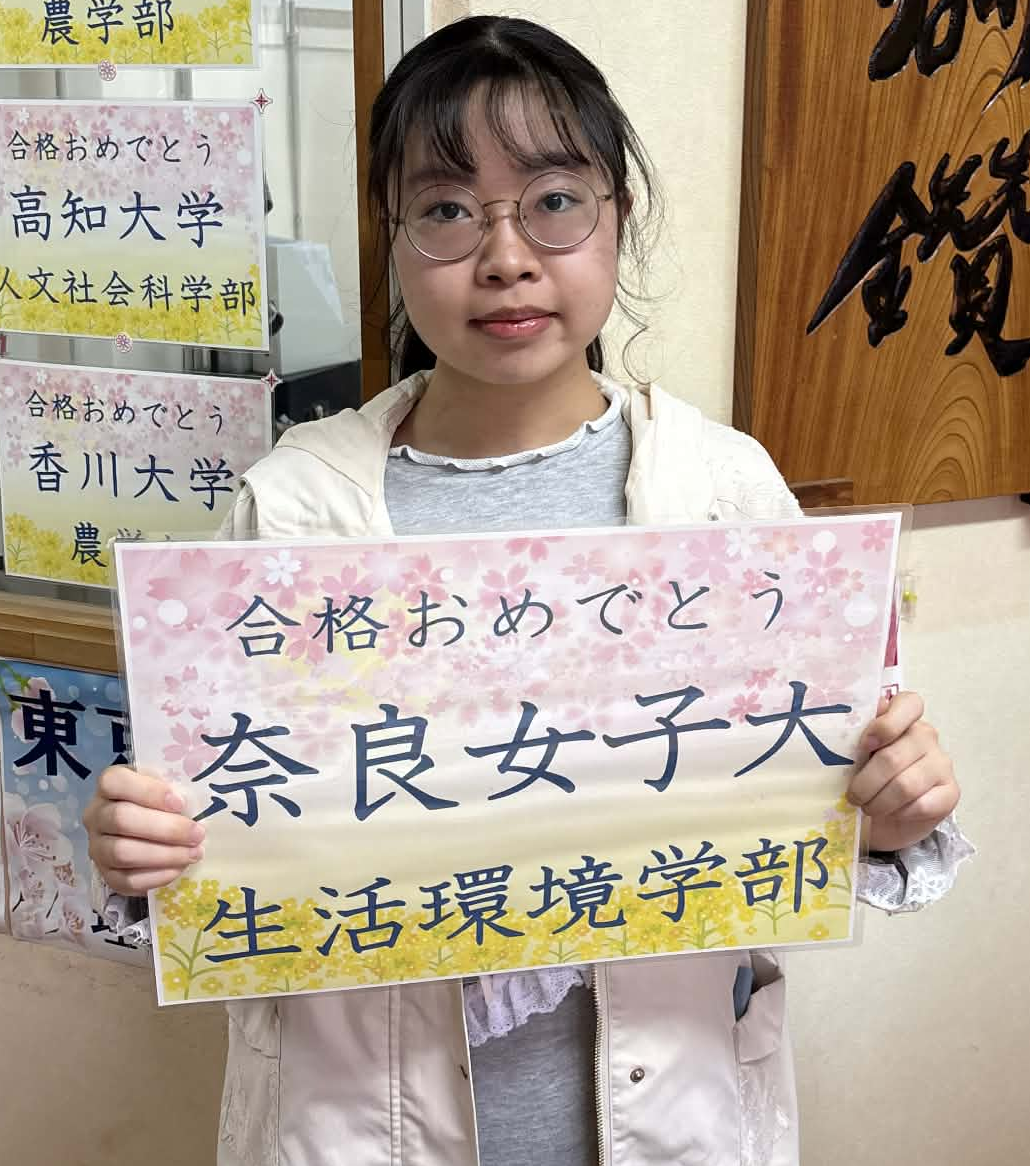 農学部
合格おめでとう
高知大学
人文社会科学部
合格おめでとう
香川大学
農学
東京
合格おめでとう
奈良女子大
生活環境学部
鑽